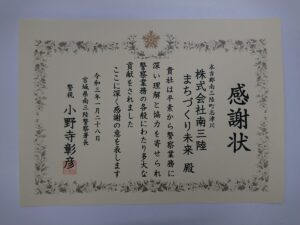 感謝状
本吉郡南三陸町志津川
株式会社南三陸
まちづくり未来 殿
貴社は平素から警察業務に
深い理解と協力を寄せられ
警察業務の各般にわたり多大な
貢献をされました
ここに深く感謝の意を表します
令和三年一月二十八日
宮城県南三陸警察署長
警視 小野寺彰彦